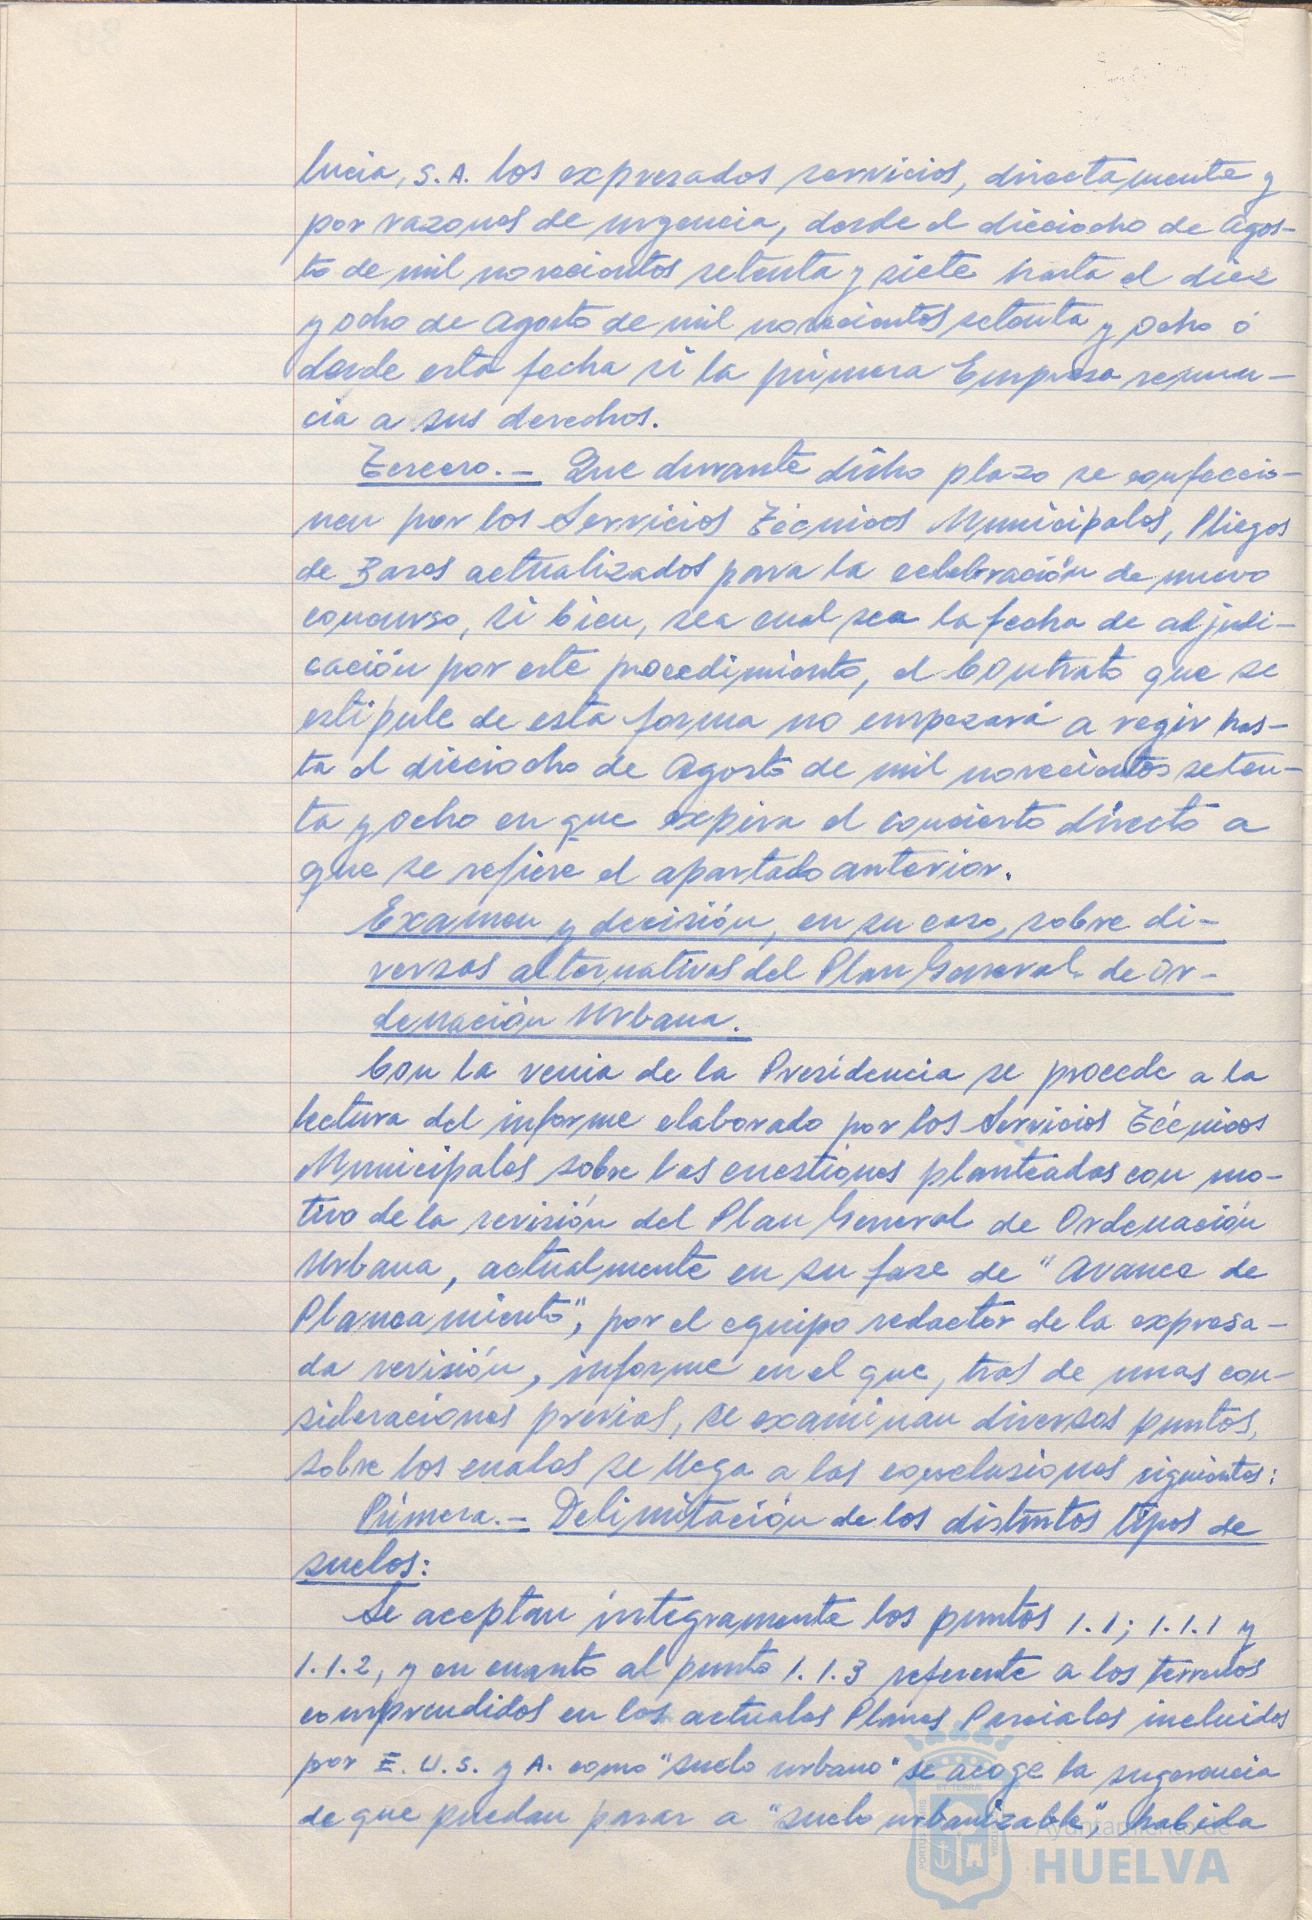 lucia, S.A. los expresados servicios, directamente y
por razones de urgencia, desde el dieciocho de Agos-
to de mil novecientos setenta y siete hasta el diez
y ocho de Agosto de mil novecientos setenta y ocho ó
desde esta fecha si la primera Empresa renun-
cia a sus derechos.
Tercero.- Que durante dicho plazo se confeccio-
nen por los Servicios Técnicos Municipales, Pliegos
de Bases actualizados para la celebración de nuevo
concurso, si bien, sea cual sea la fecha de adjudi-
cación por este procedimiento, el Contrato que se
estipule de esta forma no empezará a regir has-
ta el dieciocho de Agosto de mil novecientos seten-
ta y ocho en que expira el concierto directo a
que se refiere el apartado anterior.
Examen y decisión, en su caso, sobre di-
versas alternativas del Plan General de Or-
denación Urbana.
Con la venia de la Presidencia se procede a la
lectura del informe elaborado por los Servicios Técnicos
Municipales sobre las cuestiones planteadas con mo-
tivo de la revisión del Plan General de Ordenación
Urbana, actualmente en su fase de "Avance de
Planeamiento", por el equipo redactor de la expresa-
da revisión, informe en el que, tras de unas con-
sideraciones previas, se examinan diversos puntos,
sobre los cuales se llega a las conclusiones siguientes:
Primera.- Delimitación de los distintos tipos de
suelos:
Se aceptan íntegramente los puntos 1.1; 1.1.1 y
1.1.2, y en cuanto al punto 1.1.3 referente a los terrenos
comprendidos en los actuales Planes Parciales incluidos
por E.U.S. y A. como "suelo urbano" se acoge la sugerencia
de que puedan pasar a "suelo urbanizable", habida
Ayuntamiento de
HUELVA